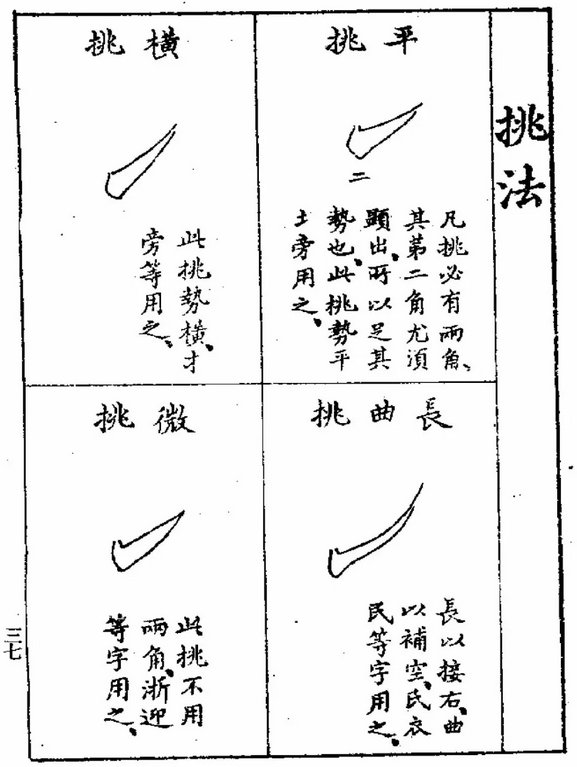 挑法
平挑
二
凡挑必有兩角、
其第二角尤須
顯出、所以足其
勢也、此挑勢平
土旁用之、
橫挑
此挑勢橫、才
旁等用之、
長曲挑
長以接右、曲
以補空、氏衣
民等字用之、
微挑
此挑不用
兩角、淅迎
等字用之、
三七